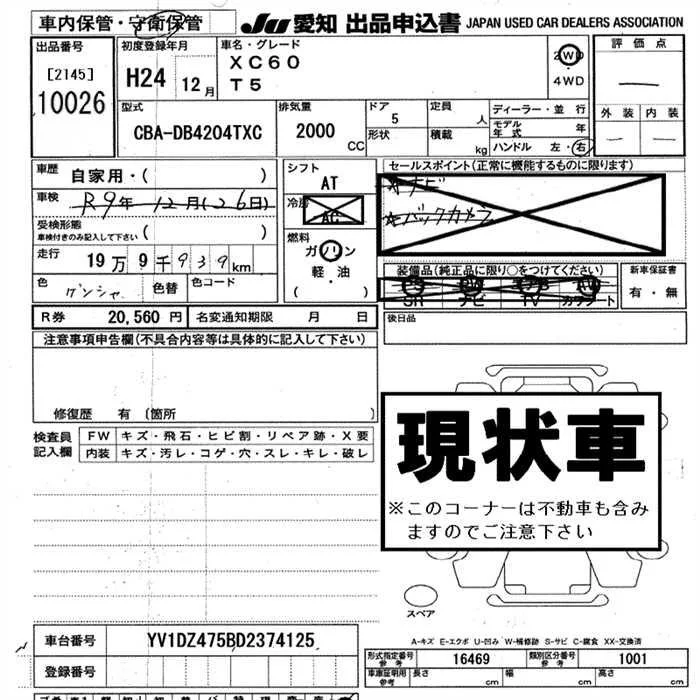 車内保管・守衛保管
JU 愛知 出品申込書 JAPAN USED CAR DEALERS ASSOCIATION
出品番号
[2145]
10026
初度登録年月
H24 12月
車名・グレード
XC60
T5
2WD
4WD
評価点
外装 内装
型式
CBA-DB4204TXC
排気量
2000 CC
ドア 5
形状
定員 人
積載 kg
ディーラー・並行
モデル年式 年
ハンドル 左・右
車歴
自家用・( )
車検
R9年12月(26日)
受検形態
車検付きのみ記入して下さい ( )
走行
19万9千939km
色 ゲンシャ 色替 色コード
シフト
AT
冷房
AC
燃料
ガソリン
軽・油
( )
セールスポイント(正常に機能するものに限ります)
☆ナビ
☆バックカメラ
装備品(純正品に限り○をつけてください)
SR ナビ TV カワシート
新車保証書
有・無
R券 20,560 円 名変通知期限 月 日
後日品
注意事項申告欄(不具合内容等は具体的に記入して下さい)
修復歴 有 (箇所 )
検査員記入欄
FW キズ・飛石・ヒビ割・リペア跡・X要
内装 キズ・汚レ・コゲ・穴・スレ・キレ・破レ
現状車
※このコーナーは不動車も含み
ますのでご注意下さい
スペア
A-キズ E-エクボ U-凹み W-補修跡 S-サビ C-腐食 XX-交換済
車台番号 YV1DZ475BD2374125
登録番号
形式指定番号 参考 16469 類別区分番号 参考 1001
車庫証明用 参考 長さ cm 幅 cm 高さ cm